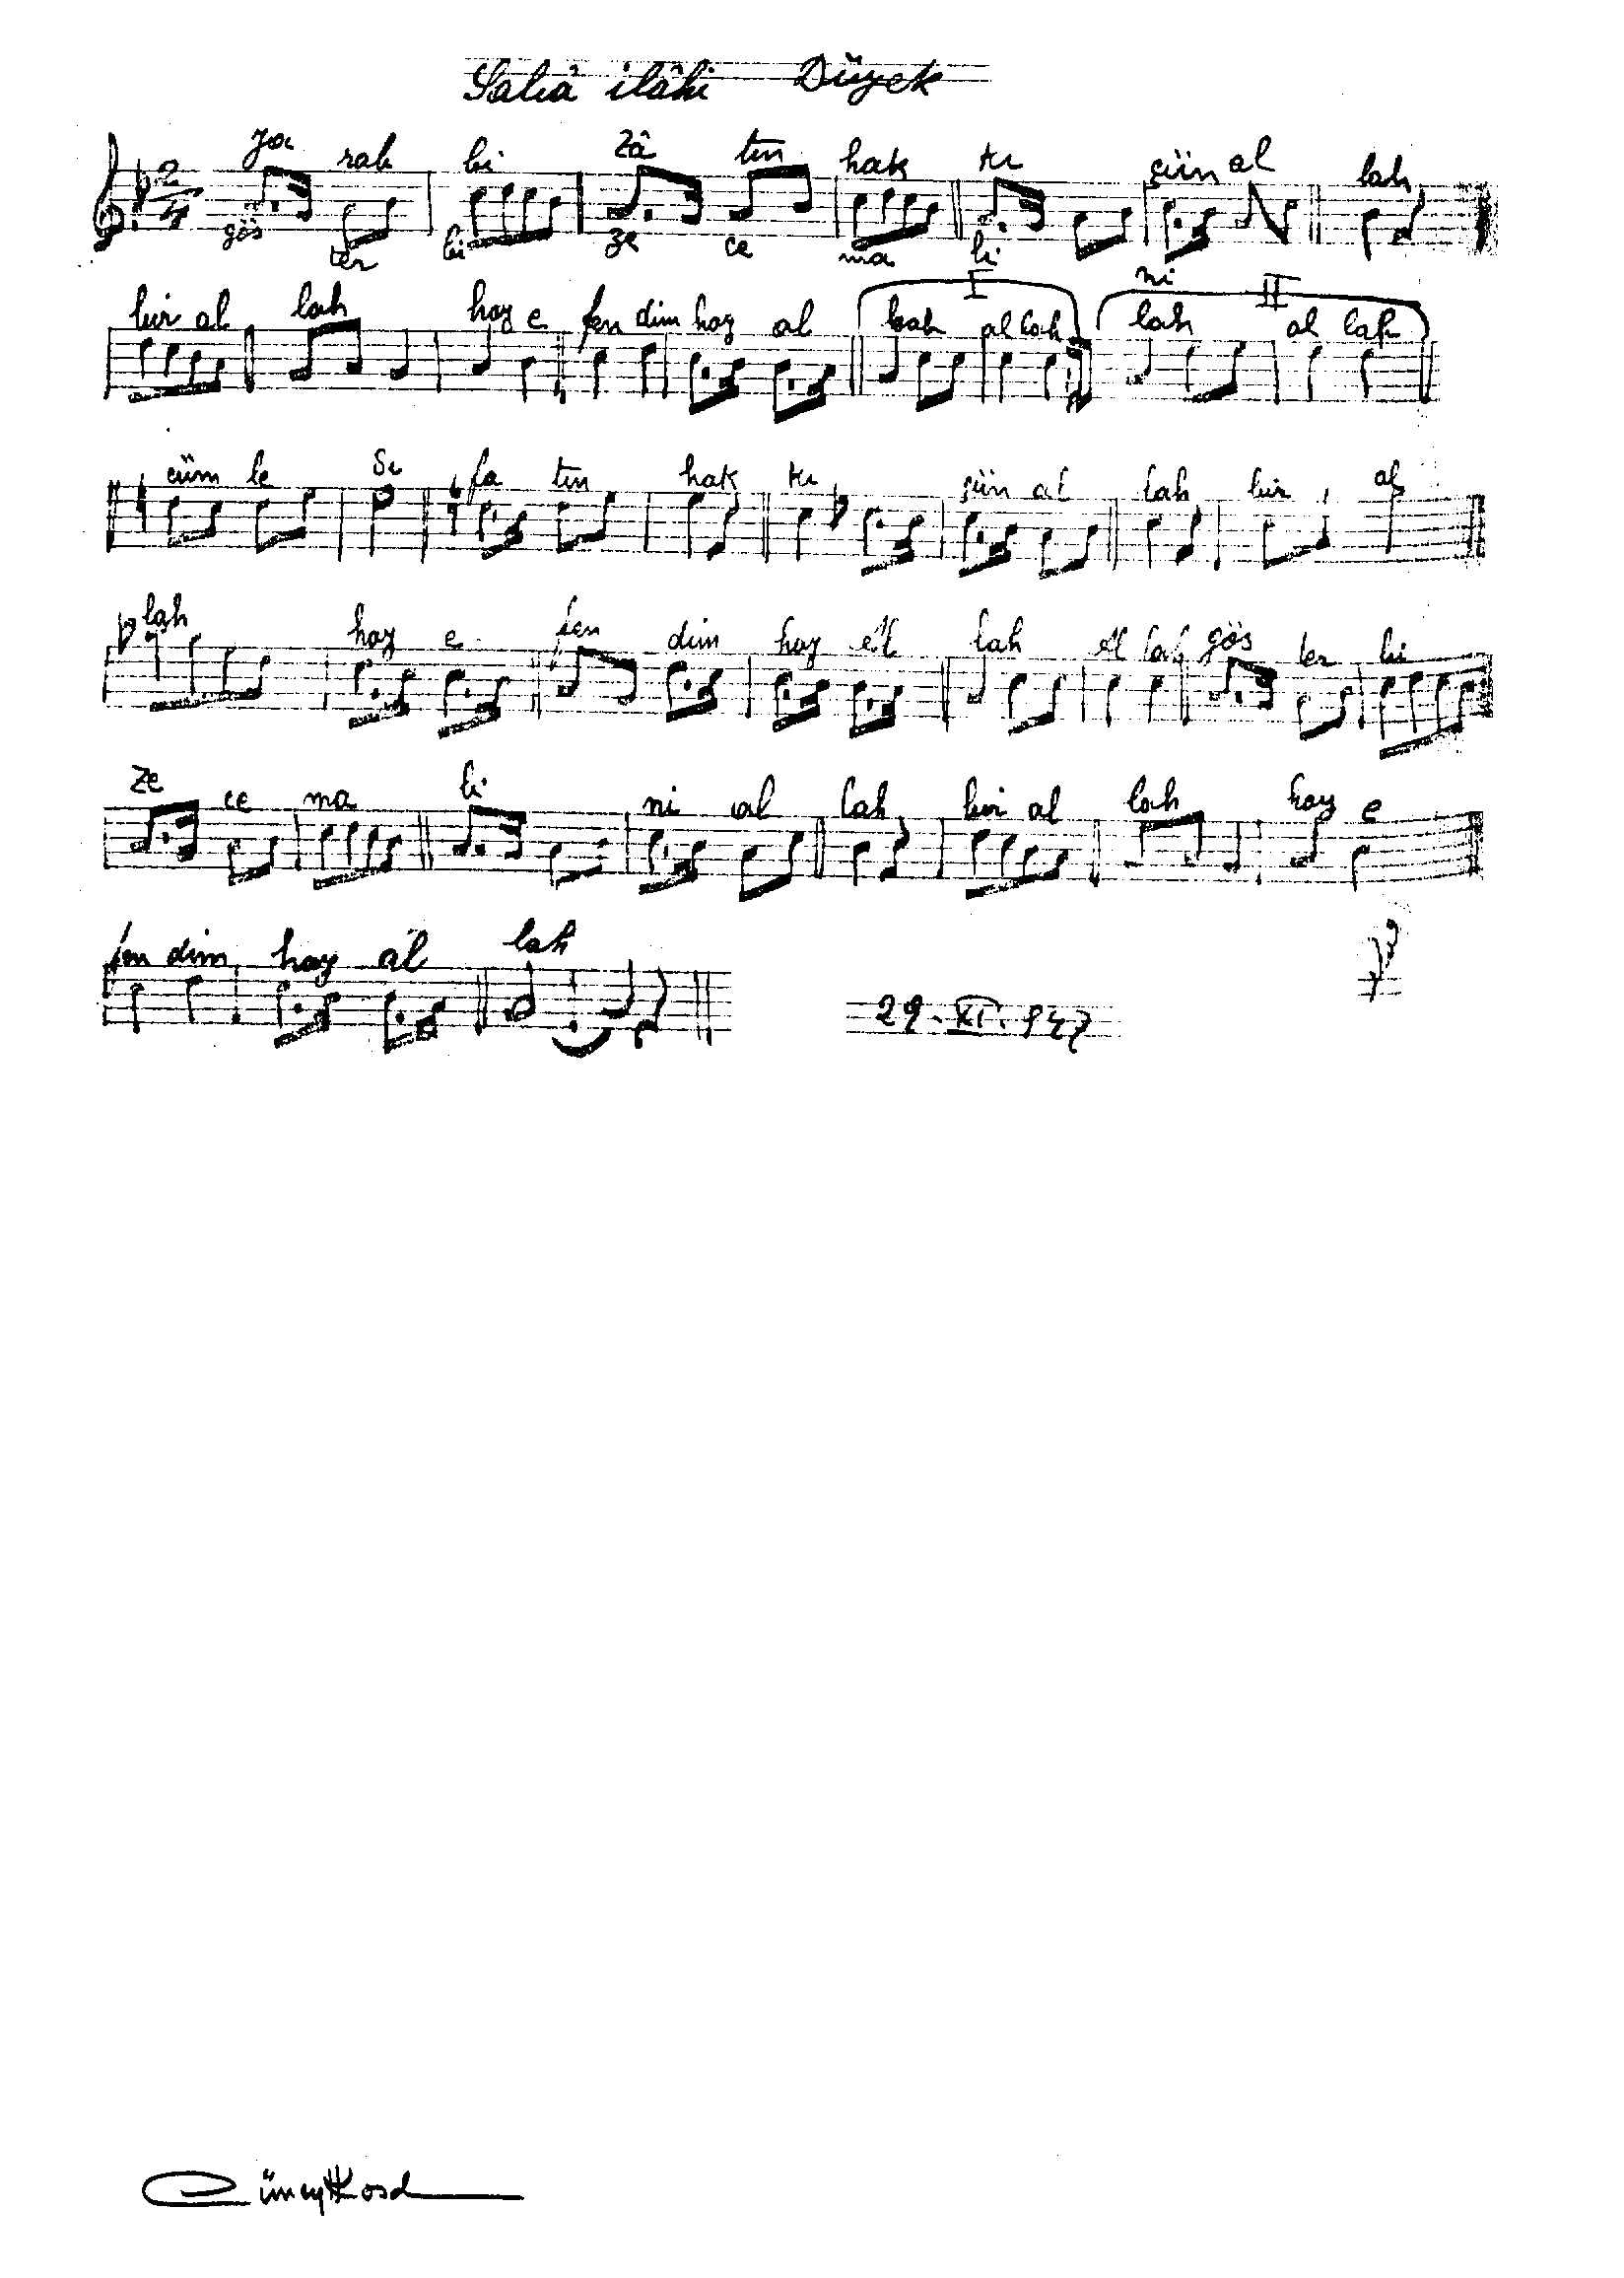 Sabâ ilâhi Düyek
2/4 Ya rab bi Zâ tın hak kı çün al lah
gös ter bi ze ce ma li ni
bir al lah hay e fen dim hay al I lah al lah II lah al lah
cüm le Sı fa tın hak kı çün al lah bir al
lah hay e fen dim hay al lah al lah gös ter bi
ze ce ma li ni al lah bir al lah hay e
fen dim hay al lah
29.XI.947